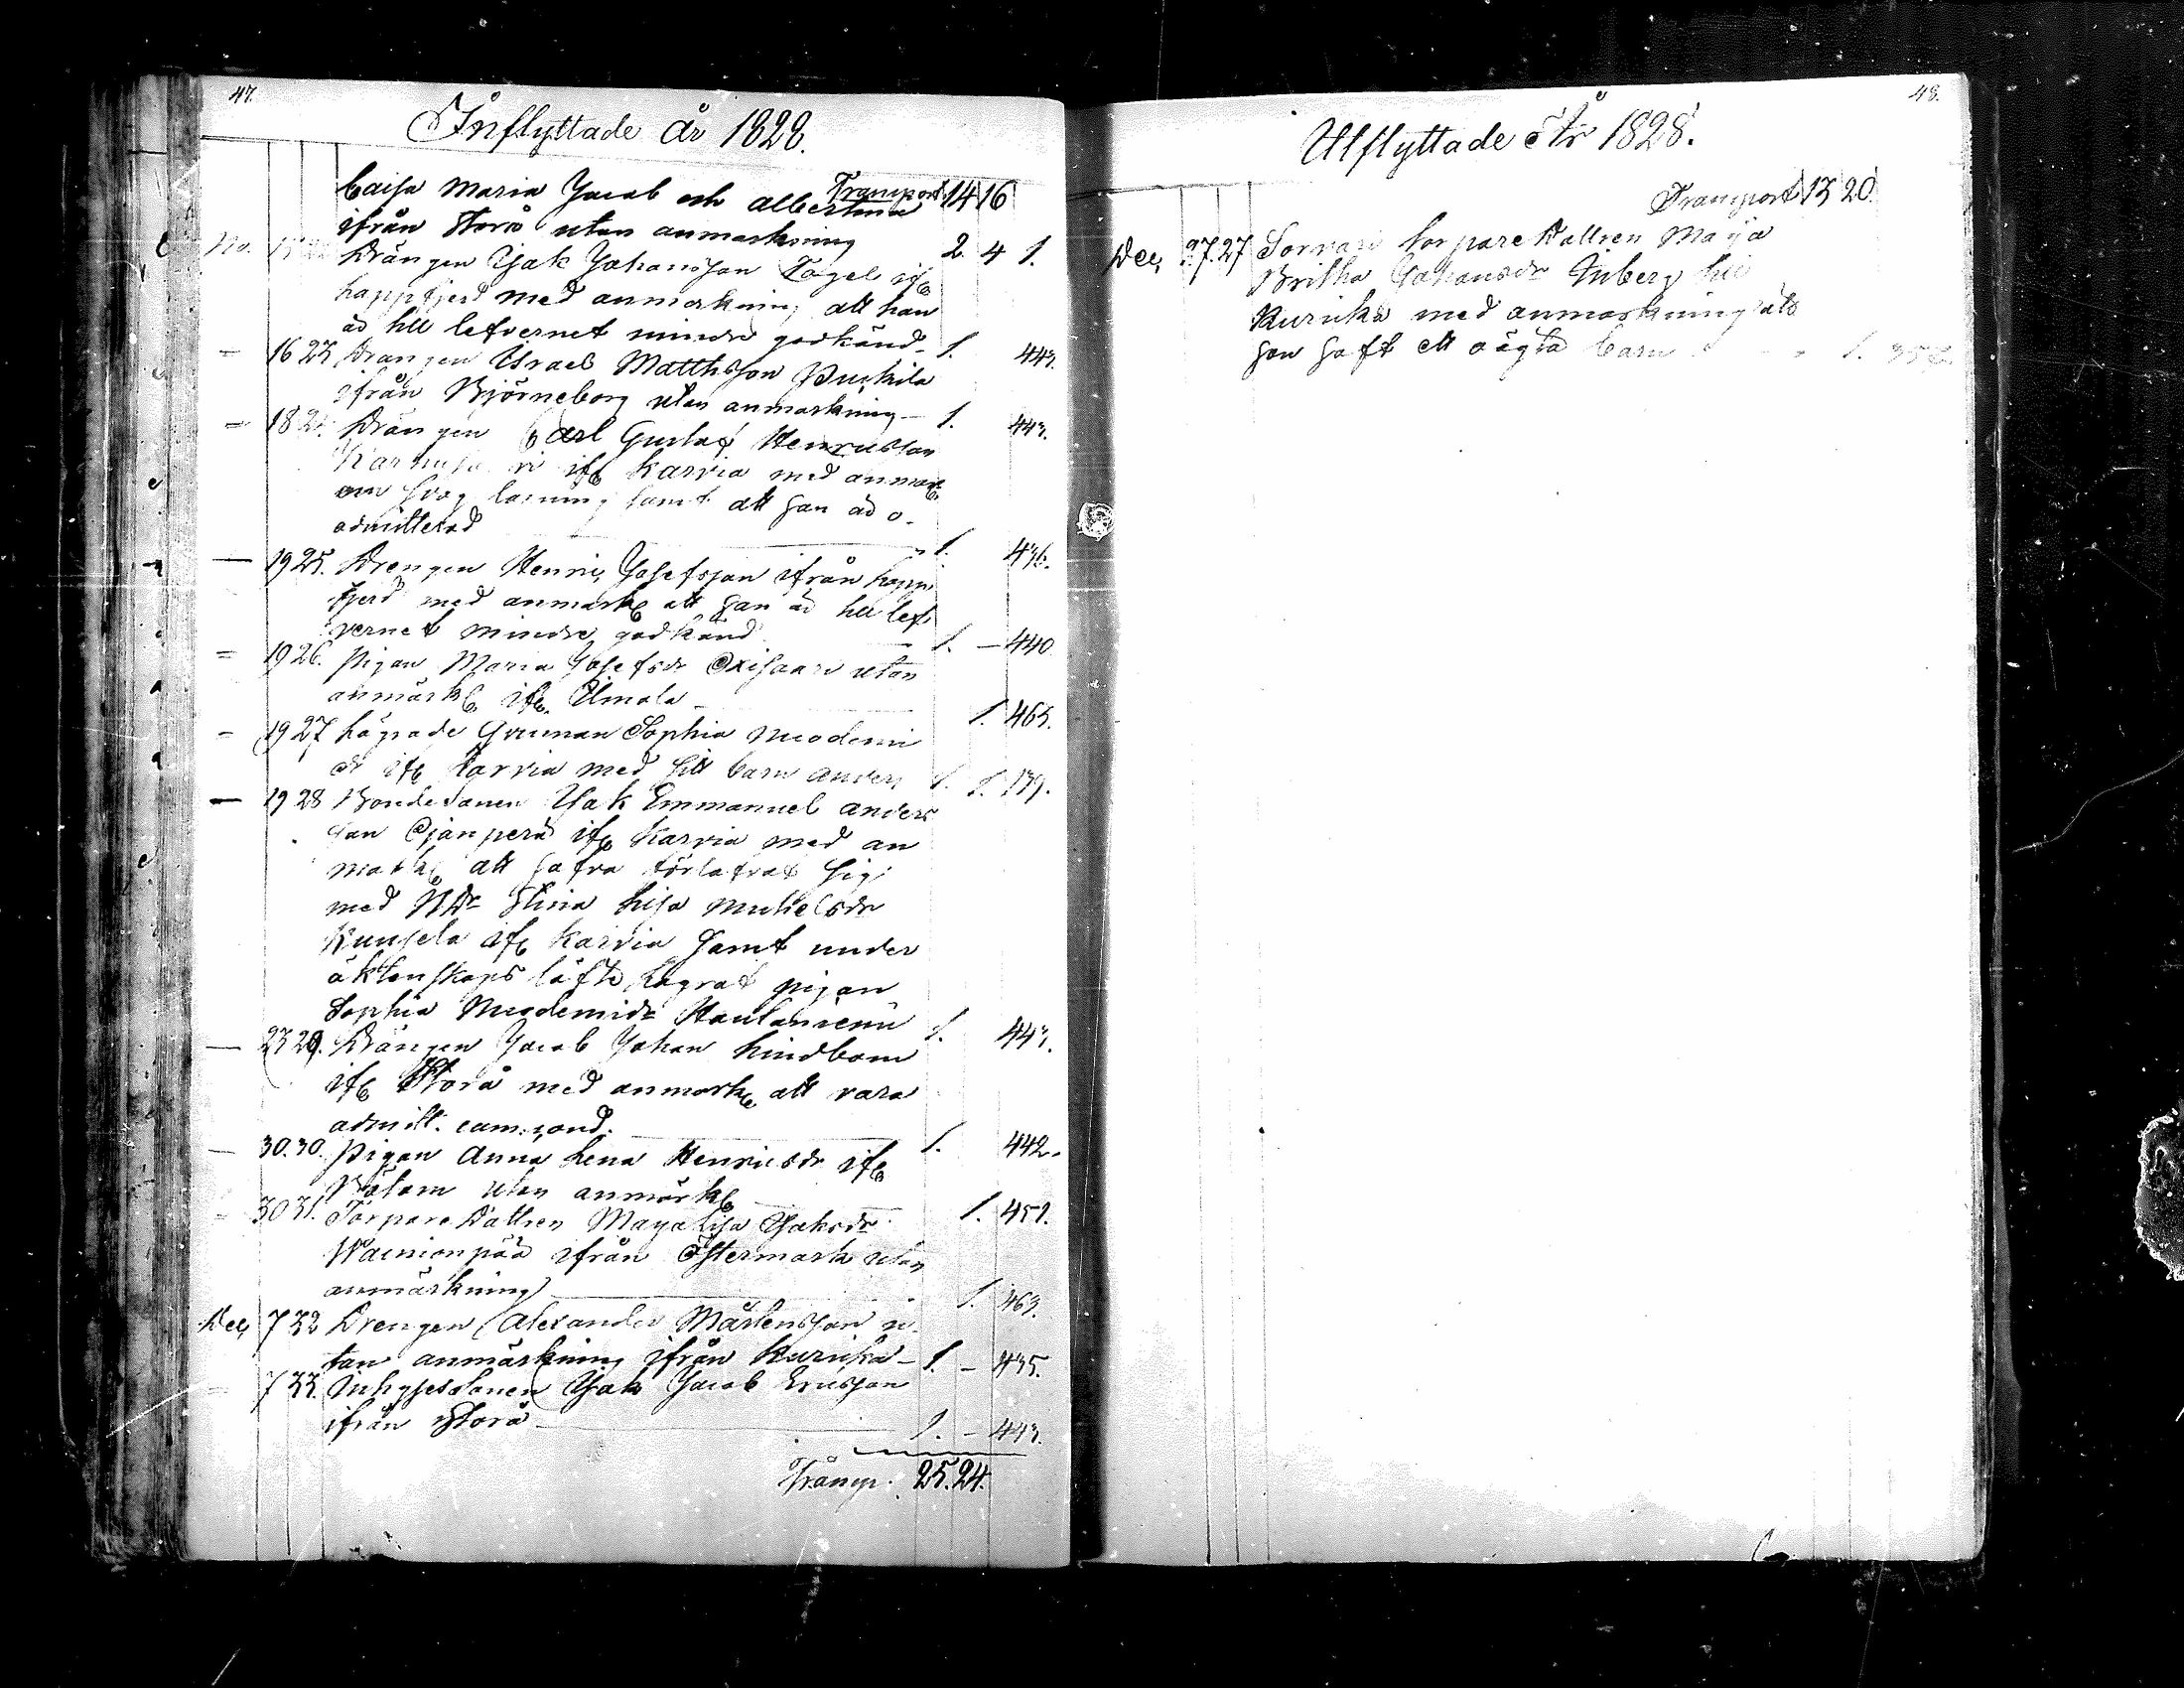 47.
Inflyttade år 1828.
Transport 14 16
Caisa Maria Jacob och Albertina
ifrån Storå utan anmärkning 2. 4 1.
No. Drängen Isak Johansson ifr
Lappfjerd med anmärkning att han
är till lefvernet mindre godkänd - 1. 443.
- 16 23. Drängen Israel Matthsson
ifrån Björneborg utan anmärkning - 1. 443.
- 18 Drängen Carl Gustaf Henricsson
ifr Karvia med anmärk
om svag läsning samt att han är o-
admitterad 1. 436.
- 19 25. Drengen Henric Josefsson ifrån Lapp
fjerd med anmärk att han är till lef
vernet mindre godkänd 1. - 440
- 19 26. Pigan Maria Josefsdr utan
anmärk ifr. Ilmola 1. 465.
- 19 27 Lägrade Qvinnan Sophia Nicodemi
dr ifr Karvia med sitt barn Anders 1. 1. 139.
- 19 28 Bondesonen Isak Emmanuel Anders
son Ojanperä ifr Karvia med an
märk att hafva förlofvat sig
med Stina Lisa Michelsdr
ifr Karvia samt under
äktenskaps löfte lägrat pigan
Sophia Nicodemidr 1. 443.
- 23 29. Drängen Jacob Johan Lindbom
ifr Storå med anmärk att vara
admitt. cum. cond. 1. 442.
- 30. 30. Pigan Anna Lena Henricsdr ifr
Bötom utan anmärk 1. 451.
- 30 31. Torpare Dottren Maya Lisa Isaksdr
Wainionpää ifrån Östermark utan
anmärkning 1. 463.
Dec 7 32 Drengen Alexander Mårtensson u-
tan anmärkning ifrån Kurikka - 1. - 435.
- 7 33. Inhyses Sonen Isak Jacob Ericsson
ifrån Storå 1. - 443.
Transp. 25. 24.
48.
Utflyttade År 1828.
Transport 13 20.
Dec 27. 27 Torpare Dottren Maija
Britha Johansdr till
Kurikka med anmärkning att
hon haft ett oägta barn 1.